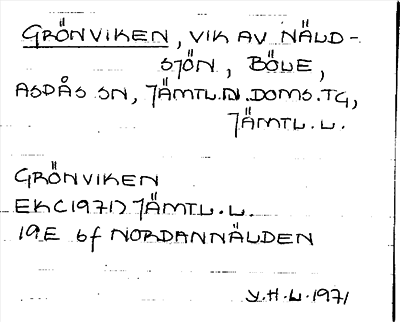 GRÖNVIKEN, VIK AV NÄLD-
SJÖN, BÖLE,
ASDÅS SN, JÄMTL.N.DOMS.TG,
JÄMTL.L.
GRÖNVIKEN
EK(1971) JÄMTL.L.
19E 6f NORDANNÄLDEN
Y.H.L.1971